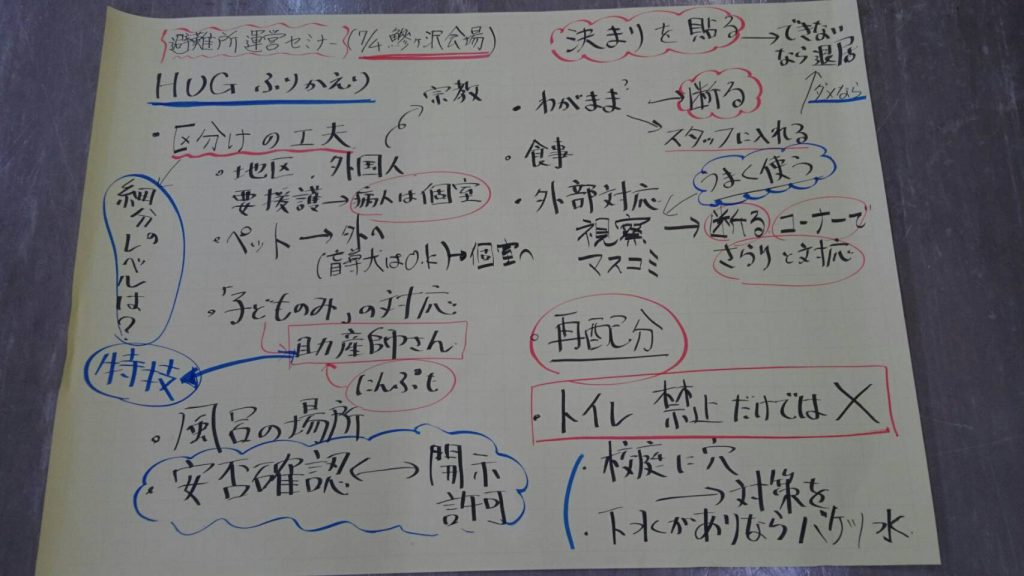 避難所運営セミナー(7/4 鰺ヶ沢会場)
HUG ふりかえり
・区分けの工夫
→宗教
・地区、外国人
要援護→病人は個室
・ペット→外へ
(盲導犬はO.K)→個室へ
細分のレベルは?
・「子どものみ」の対応
助産師さん
にんぷも
特技
・風呂の場所
・安否確認↔開示許可
決まりを貼る→できないなら退居
ダメなら
・わがまま?→断る
→スタッフに入れる
・食事
・外部対応
うまく使う
視察
マスコミ
→断る コーナーで
さらりと対応
・再配分
・トイレ 禁止だけでは×
・校庭に穴
→対策を
・下水がありならバケツ水